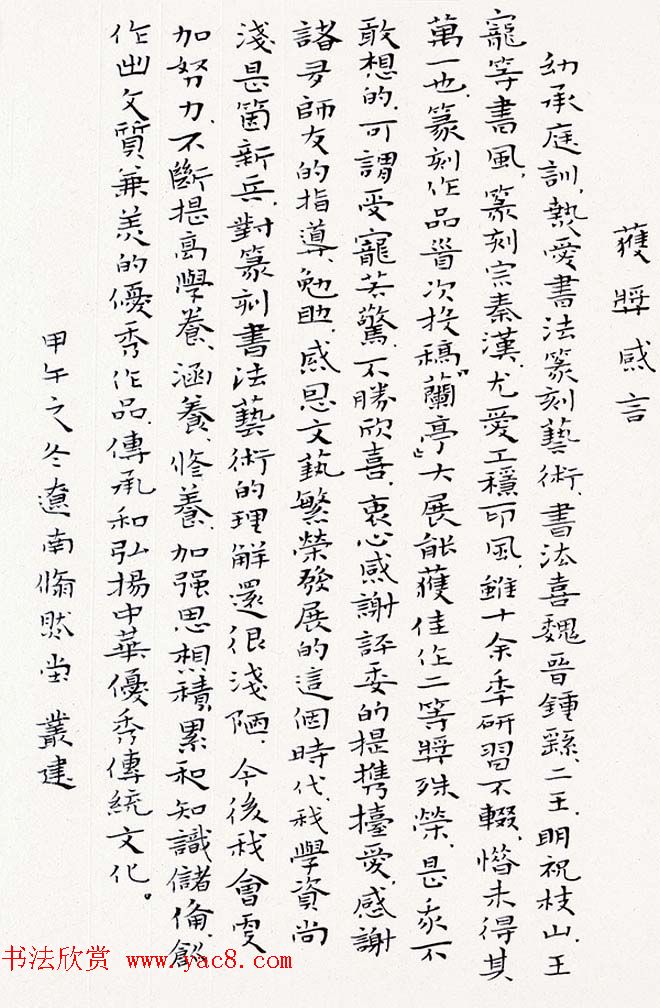 獲獎感言
幼承庭訓,熱愛書法篆刻藝術,書法喜魏晋鍾繇、二王、明祝枝山、王
寵等書風,篆刻宗秦漢,尤愛工穩印風,雖十余季研習不輟,憯未得其
萬一也,篆刻作品首次投稿“蘭亭”大展能獲佳作二等獎殊榮,是我不
敢想的,可謂受寵若驚,不勝欣喜,衷心感謝評委的提携擡愛,感謝
諸多師友的指導、勉助,感恩文藝繁榮發展的這個時代,我學資尚
淺是箇新兵,對篆刻書法藝術的理解還很淺陋,今後我會更
加努力,不斷提高學養、涵養、修養,加强思想積累和知識儲備,創
作出文質兼美的優秀作品,傳承和弘揚中華優秀傳統文化。
甲午之冬遼南翛然堂 叢建
书法欣赏 www.yac8.com